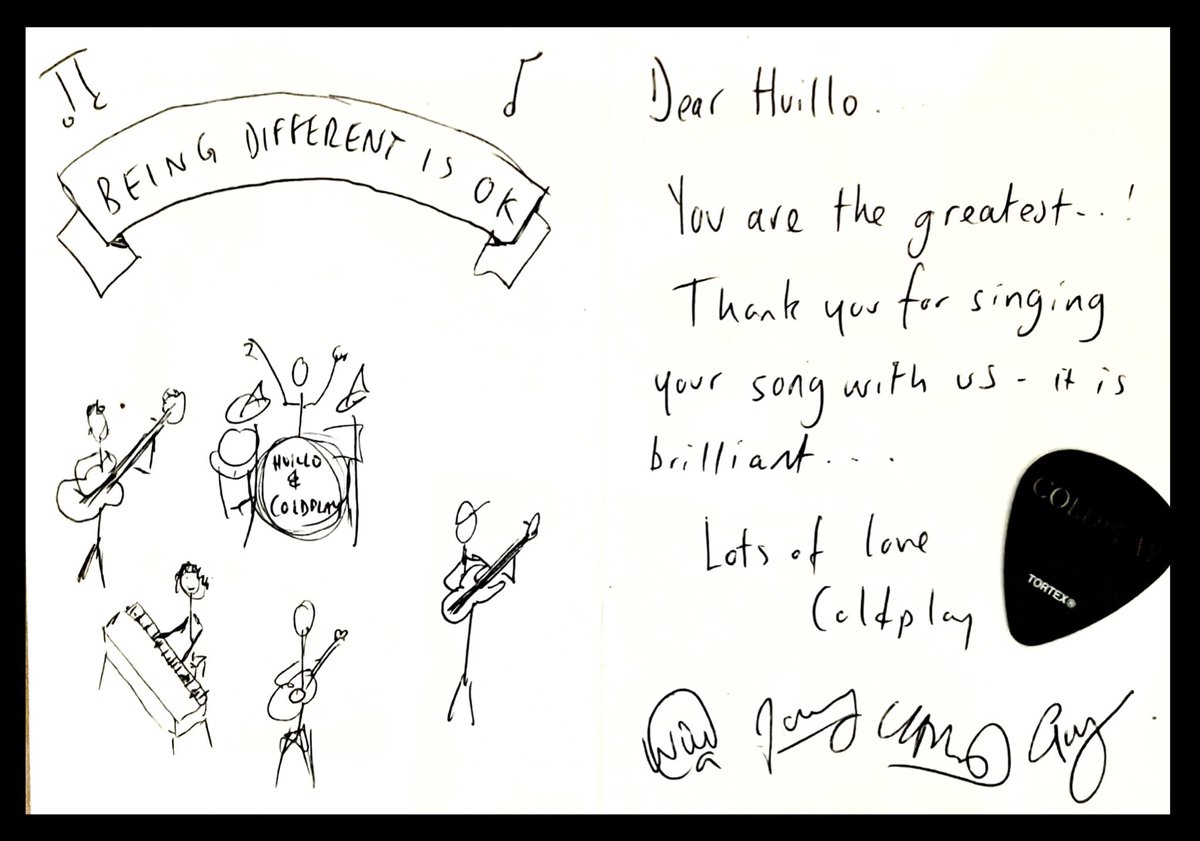 BEING DIFFERENT IS OK
HUILLO
&
COLDPLAY
Dear Huillo.
You are the greatest...!
Thank you for singing
your song with us - it is
brilliant...
Lots of love
Coldplay
COLDPLAY
TORTEX®
Will Jonny Chris Guy